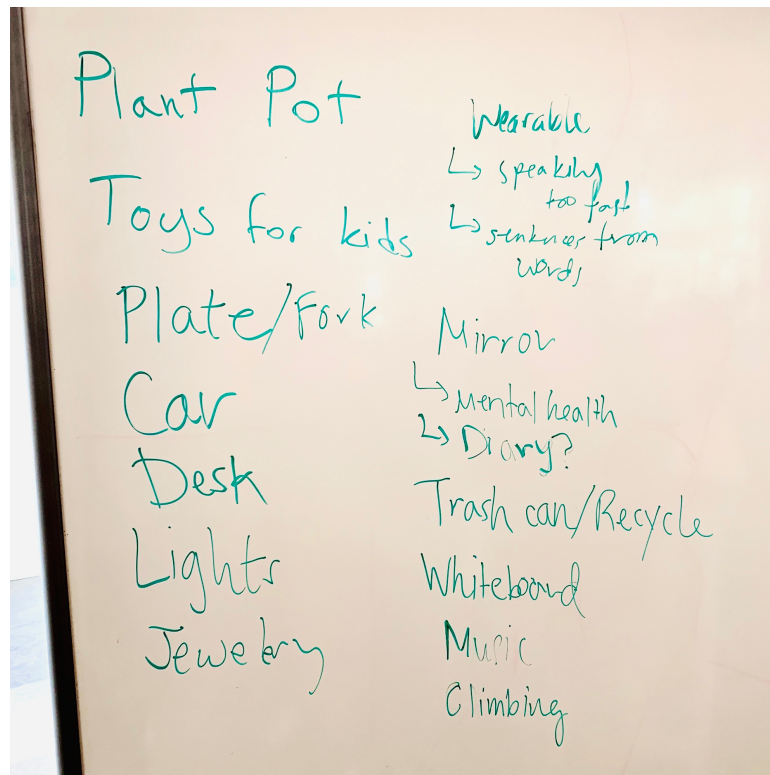 Plant Pot
Toys for kids
Plate/Fork
Car
Desk
Lights
Jewelry
Wearable
↳ speaking
too fast
↳ sentences from
words
Mirror
↳ Mental health
↳ Diary?
Trash can/Recycle
Whiteboard
Music
Climbing